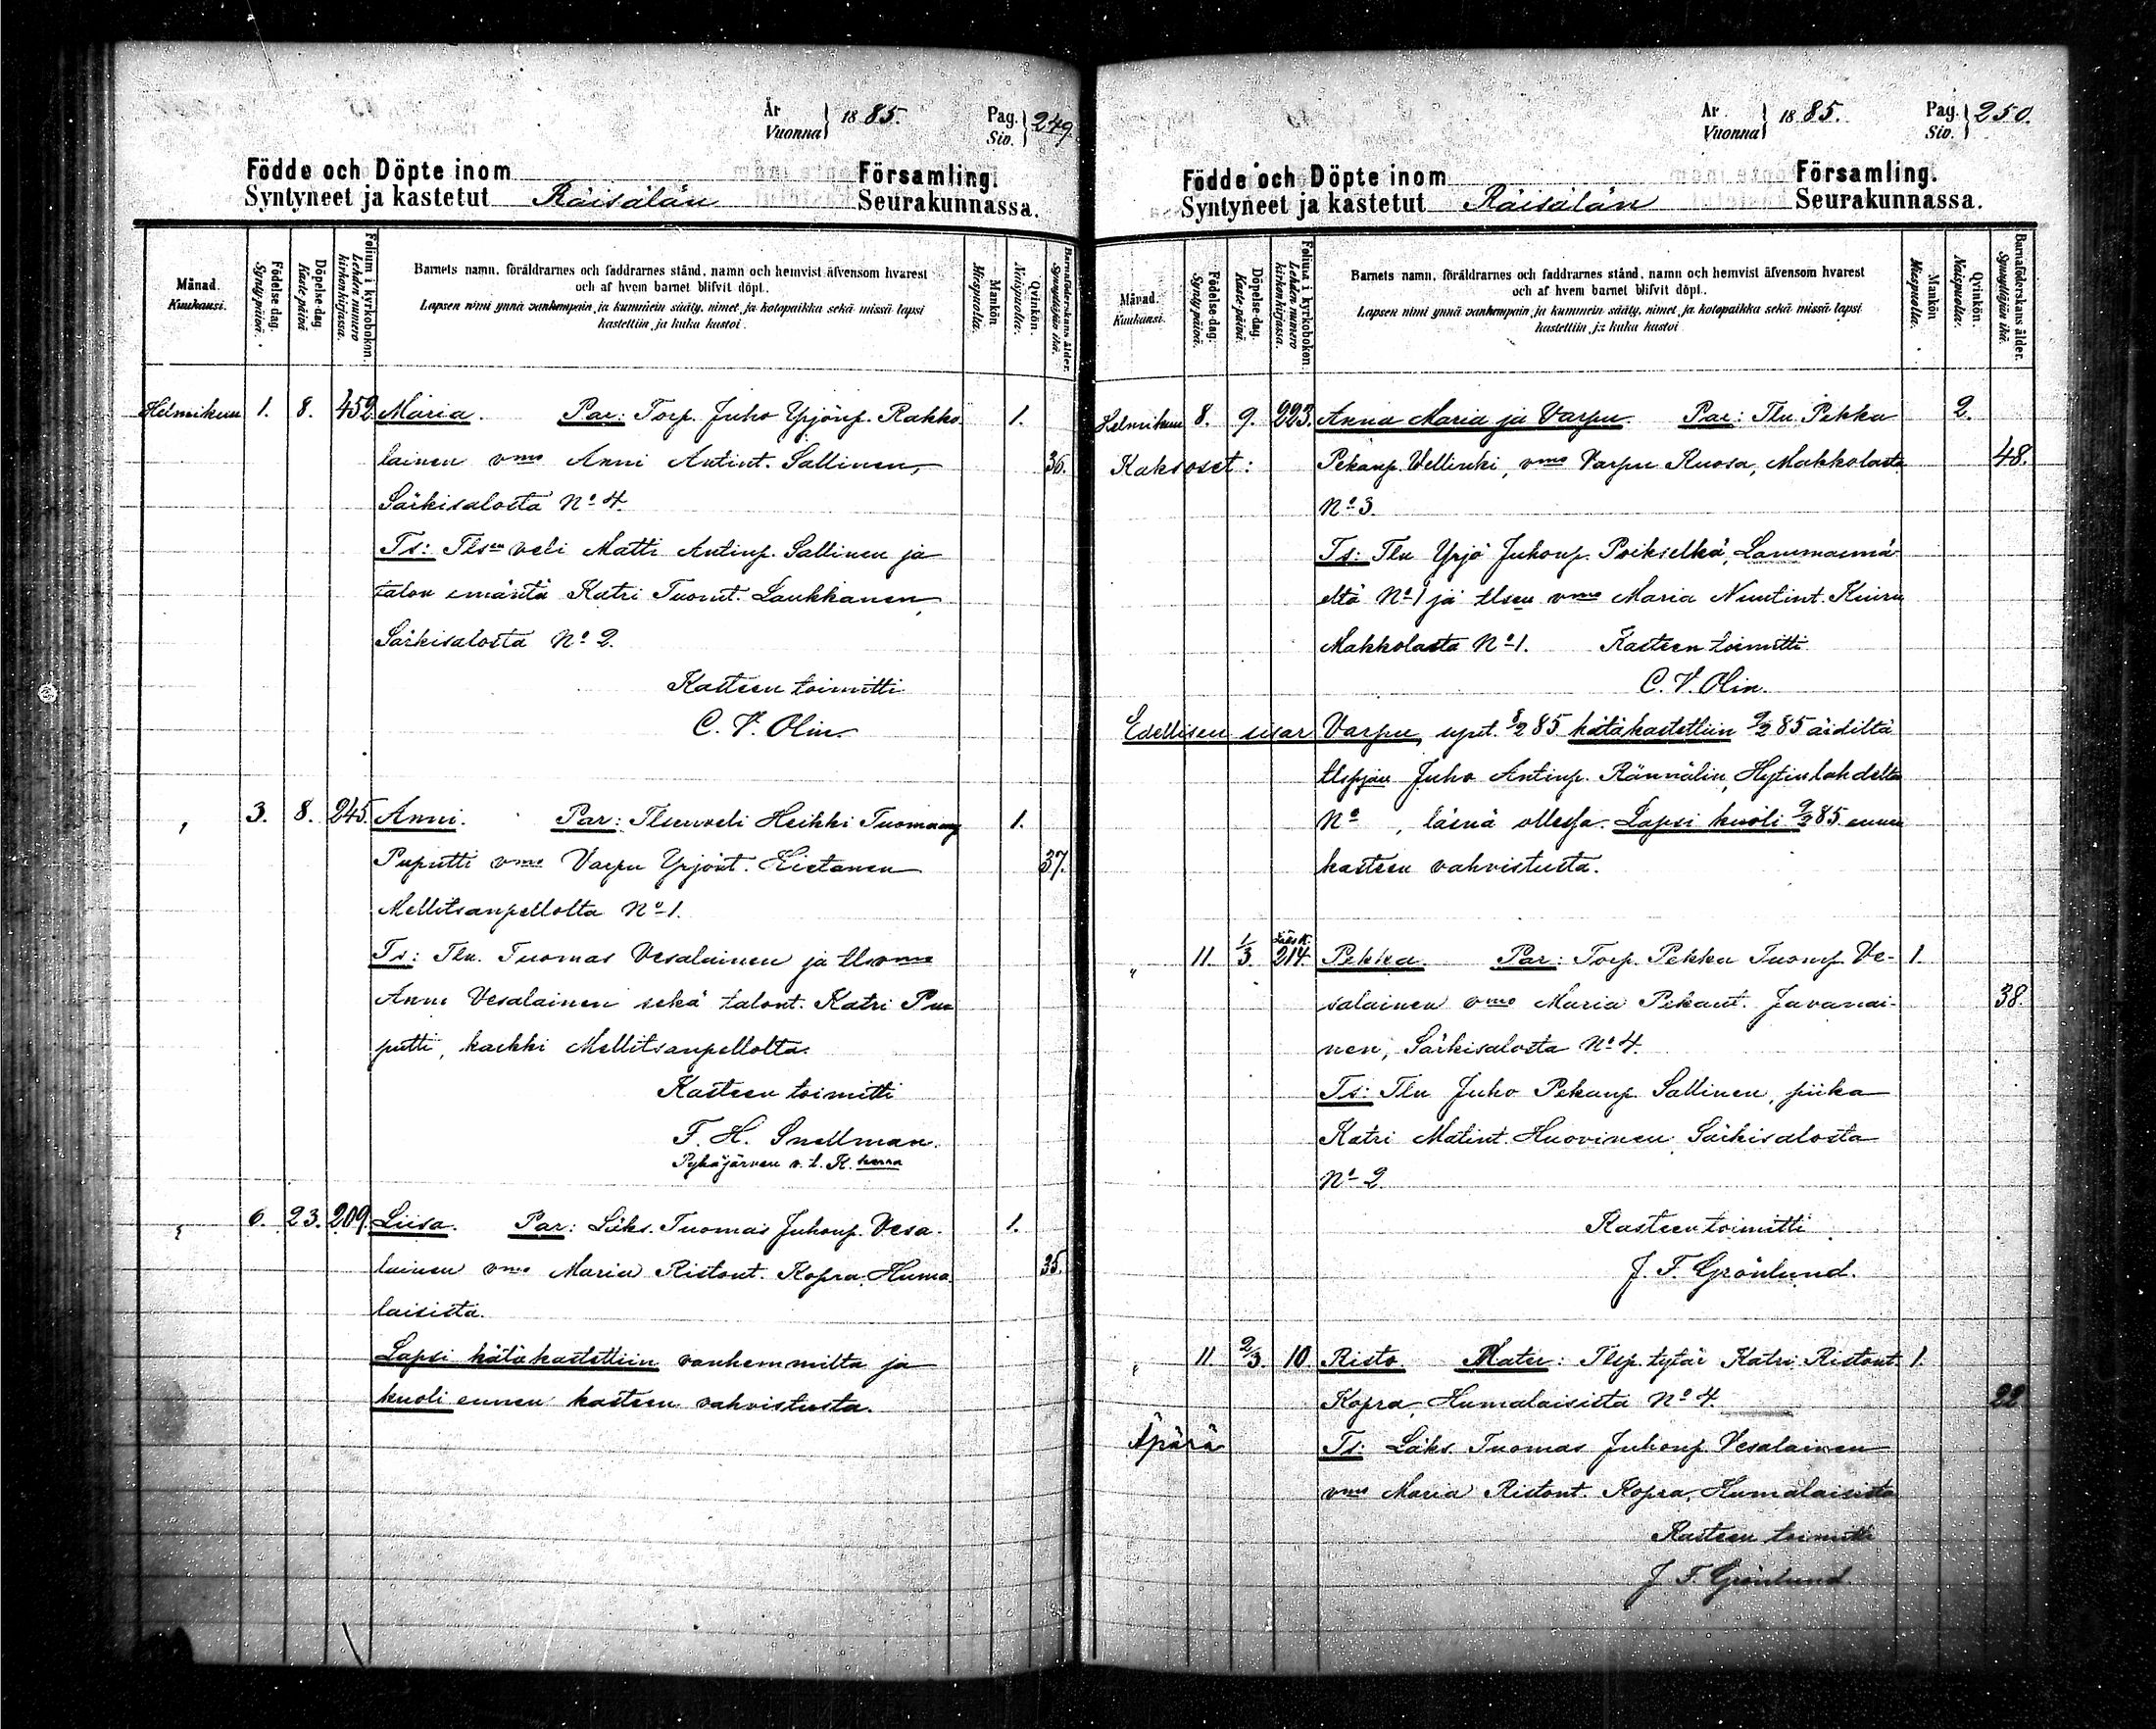 År
Vuonna } 1885.
Pag.
Siv. } 249.
Födde och Döpte inom Församling.
Syntyneet ja kastetut Räisälän Seurakunnassa.
Månad.
Kuukausi.
Födelse-dag.
Synty-päivä.
Döpelse-dag.
Kaste-päivä
Folium i kyrkobokon.
Lehden numero
kirkonkirjassa.
Barnets namn, föräldrarnes och faddrarnes stånd, namn och hemvist äfvensom hvarest
och af hvem barnet blifvit döpt.
Lapsen nimi ynnä vanhempain ja kummein sääty, nimet ja kotopaikka sekä missä lapsi
kastettiin ja kuka kastoi.
Mankön
Miespuolta.
Qvinkön.
Naispuolta.
Barnaföderskans ålder.
Synnyttäjän ikä.
Helmikuu 1. 8. 452. Maria. Par: Torp. Juho Yrjönp. Rakko- 1.
lainen vmo Anni Antint. Sallinen, 36.
Särkisalosta No 4.
Ts: Tlsen veli Matti Antinp. Sallinen ja
talon emäntä Katri Tuomt. Laukkanen,
Särkisalosta No 2.
Kasteen toimitti
C. V. Olin.
" 3. 8. 245. Anni. Par: Tlsenveli Heikki Tuomanp 1.
Puputti vmo Varpu Yrjönt. Hietanen 37.
Mellitsanpellolta No 1.
Ts: Tln. Tuomas Vesalainen ja tlsvmo
Anni Vesalainen sekä talont. Katri Pu-
putti, kaikki Mellitsanpellolta.
Kasteen toimitti
F. H. Snellman.
Pyhäjärven v. t. K. herra
" 6. 23. 209. Liisa. Par: Läks. Tuomas Juhonp. Vesa- 1.
lainen vmo Maria Ristont. Kopra, Huma- 35.
laisista.
Lapsi hätäkastettiin vanhemmilta ja
kuoli ennen kasteen vahvistusta.
År
Vuonna } 1885.
Pag.
Siv. } 250.
Födde och Döpte inom Församling.
Syntyneet ja kastetut Räisälän Seurakunnassa.
Månad.
Kuukausi.
Födelse-dag.
Synty-päivä.
Döpelse-dag.
Kaste-päivä.
Folium i kyrkobokon.
Lehden numero
kirkonkirjassa.
Barnets namn, föräldrarnes och faddrarnes stånd, namn och hemvist äfvensom hvarest
och af hvem barnet blifvit döpt.
Lapsen nimi ynnä vanhempain ja kummein sääty, nimet ja kotopaikka sekä missä lapsi
kastettiin ja kuka kastoi.
Mankön
Miespuolta.
Qvinkön.
Naispuolta.
Barnaföderskans ålder.
Synnyttäjän ikä.
Helmikuu 8. 9. 223. Anna Maria ja Varpu. Par: Tln. Pekka 2.
Kaksoset: Pekanp. Vellinki, vmo Varpu Ruosa, Makkolasta 48.
No 3.
Ts: Tln Yrjö Juhonp. Poikselkä, Lammasmä-
eltä No 1 ja tlsen vmo Maria Nuutint. Kiiru
Makkolasta No 1. Kasteen toimitti
C. V. Olin.
Edellisen sisar Varpu, synt. 8/2 85 hätäkastettiin 9/2 85 äidiltä
tlspjan Juho Antinp. Rännälin, Hytinlahdelta
No , läsnä ollessa. Lapsi kuoli 9/2 85 ennen
kasteen vahvistusta.
" 11. 1/3 214. Pekka. Par: Torp. Pekka Tuomp. Ve- 1.
salainen vmo Maria Pekant. Javanai- 38.
nen, Särkisalosta No 4.
Ts: Tln Juho Pekanp. Sallinen, piika
Katri Matint. Huovinen Särkisalosta
No 2.
Kasteen toimitti
J. F. Grönlund.
" 11. 2/3. 10 Risto. Mater: Tlsp. tytär Katri Ristont. 1.
Kopra, Humalaisista No 4. 22
Äpärä Ts: Läks Tuomas Juhonp. Vesalainen
vmo Maria Ristont. Kopra, Humalaisista
Kasteen toimitti
J. F. Grönlund.